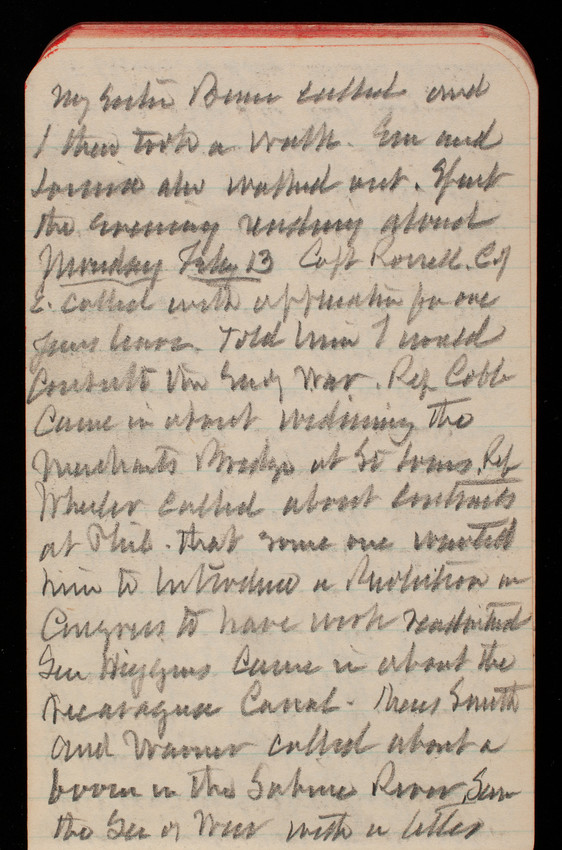 My sister Bessie called and
I then took a walk. Em and
also walked out. Spent
the evening reading aloud
Monday Feby 13 Capt Rossell. C of
E. called with application for one
years leave. Told him I would
Consult the Secy War. Rep Cobb
Came in about widening the
Merchants Bridge at St Louis. Rep
Wheeler called about contracts
at Phil. that some one wanted
him to introduce a Resolution in
Congress to have work readvertised
Sen Higgins came in about the
Nicaragua Canal. Messrs Smith
and Warner called about a
boom in the Sabine River. Saw
the Sec of War with a letter